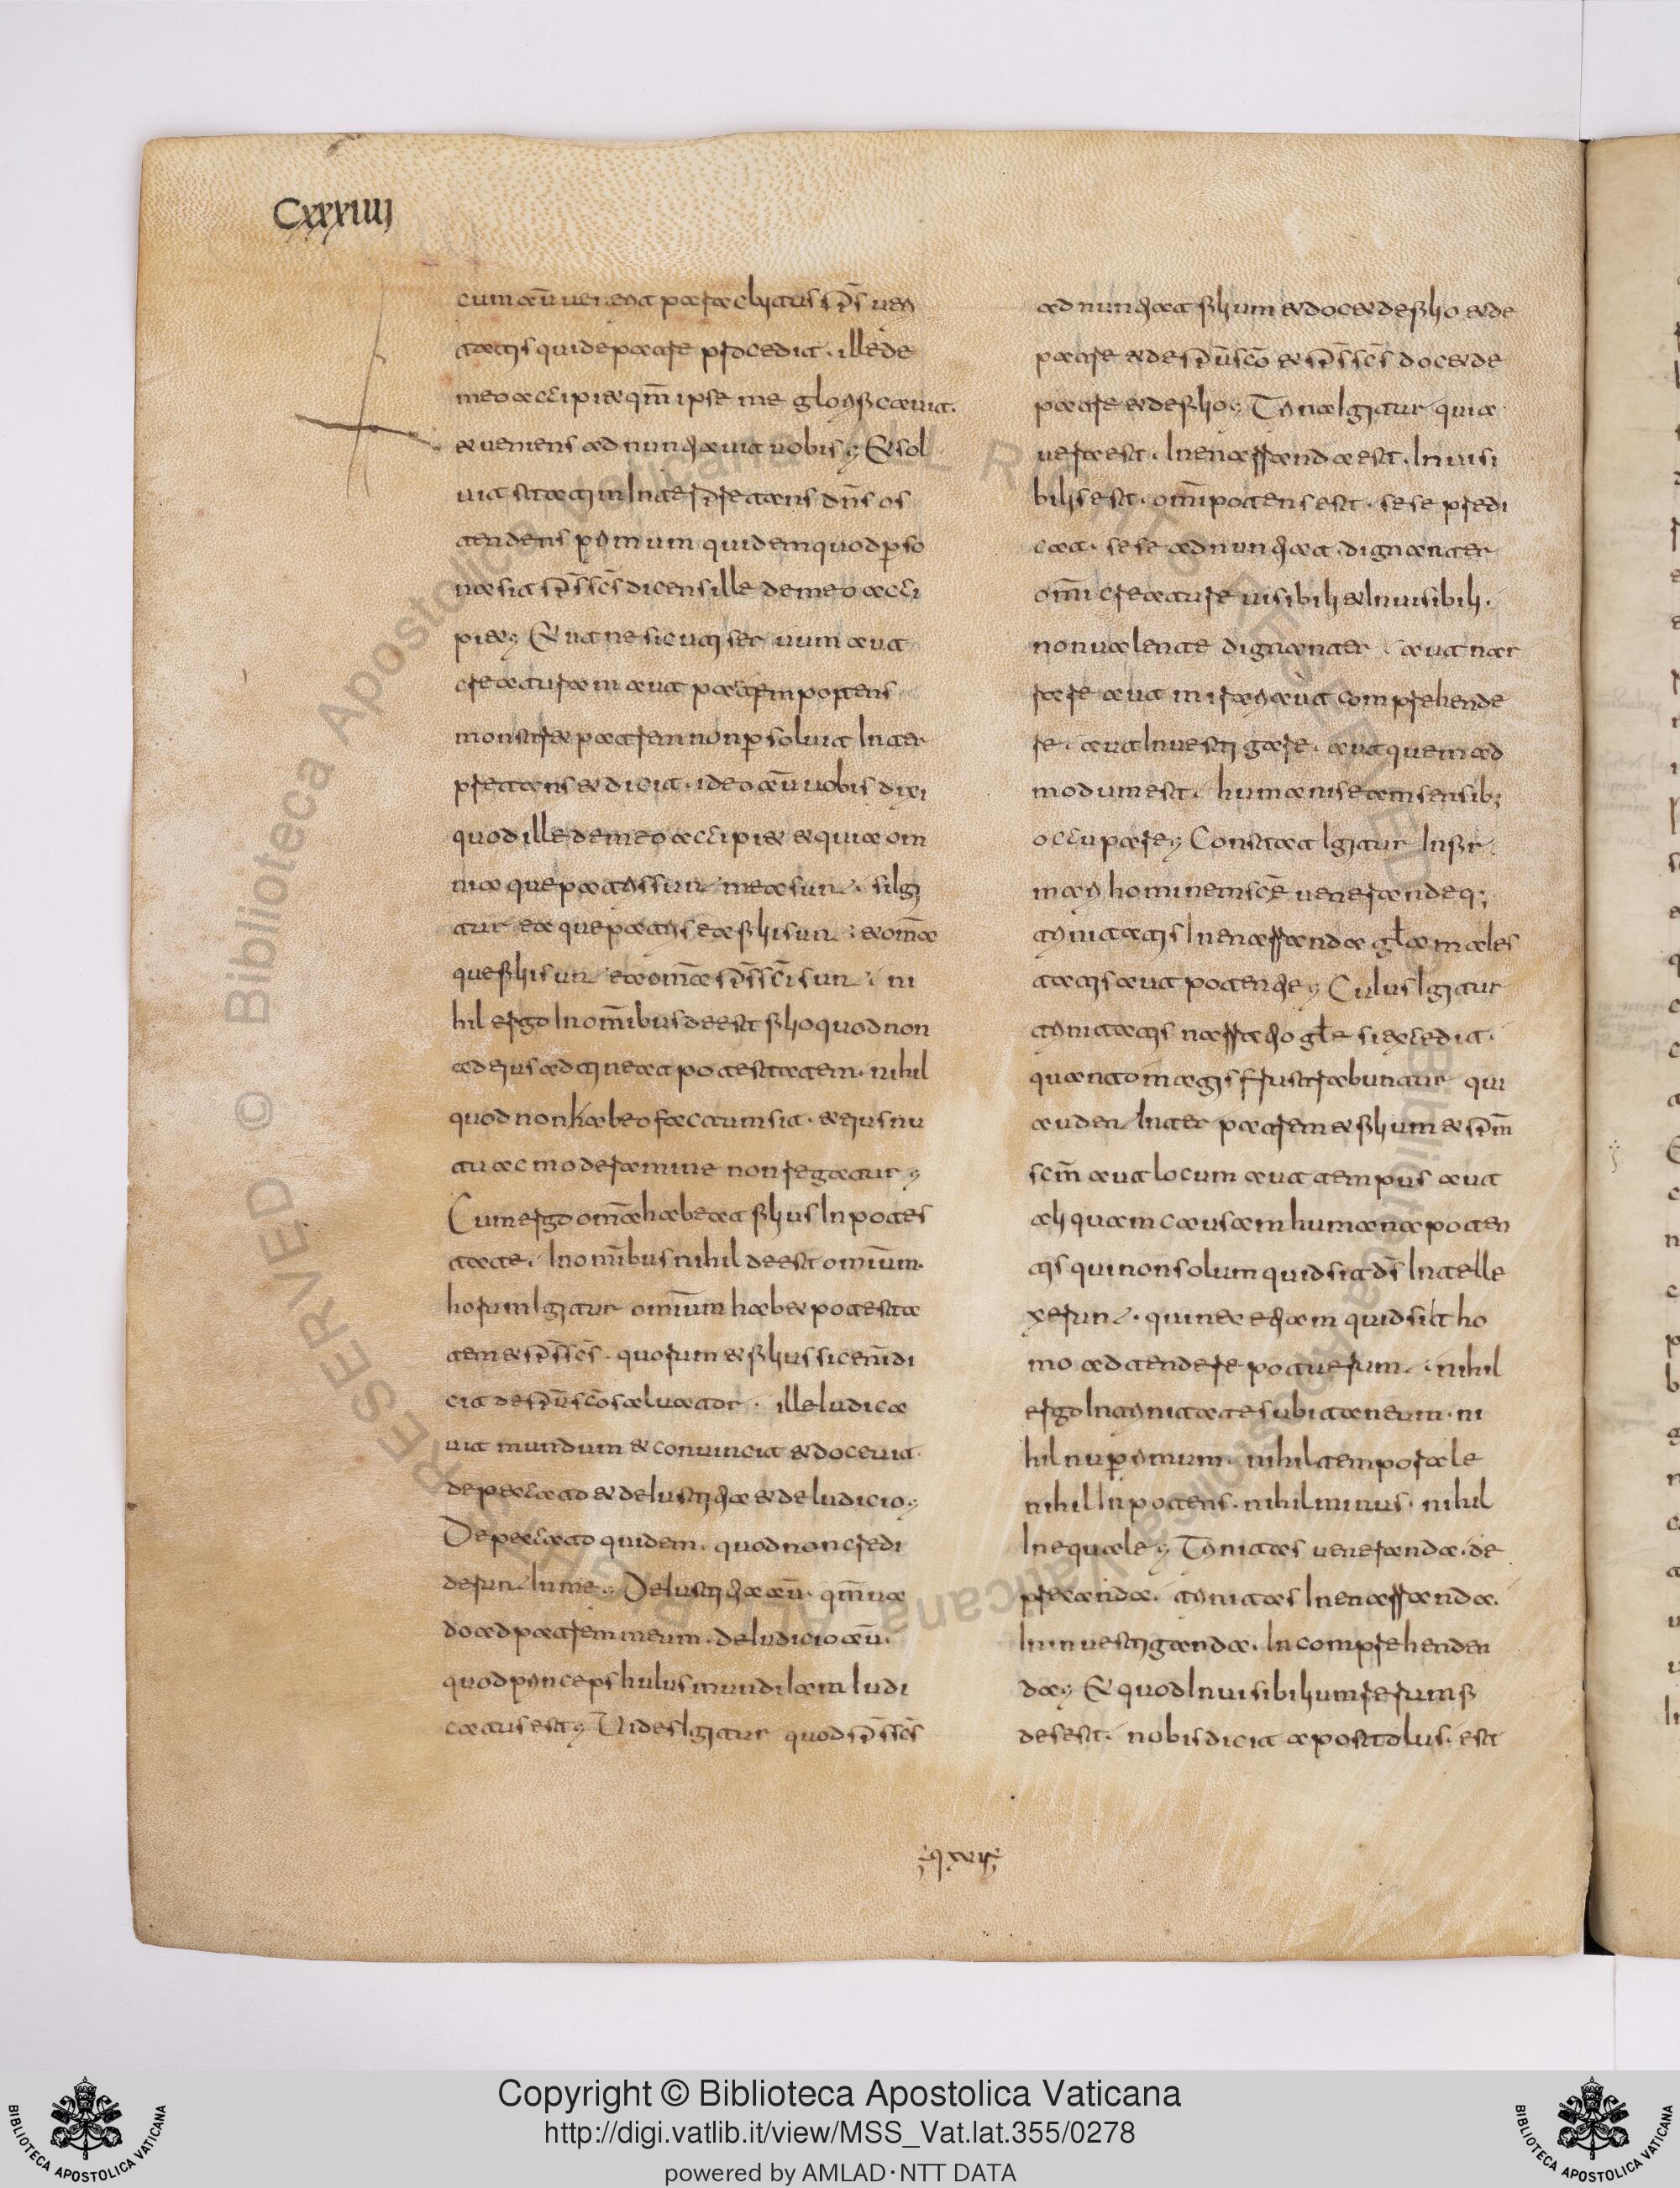 Cxxxiiii
cum aū uenerit paraclitus sp̄s ueri
tatis qui de patre procedit · ille de
meo accipiet qm̄ ipse me glorificauit ·
et ueniens adnuntiauit uobis ; Et sol
uit statim interpretans dn̄s os
tendens primum quidem quod perso
na sit sp̄s sc̄s dicens ille de meo acci
piet ; Et ut ne sicuti seruum aut
creaturam aut patrem potens
monstret patrem non persoluit inter
pretans et dicit · ideo aū uobis dixi
quod ille de meo accipiet et quia om
nia que patris sunt mea sunt · si igi
tur ea que patris ea filii sunt · et om̄a
que filii sunt ea om̄a sp̄s sc̄i sunt · ni
hil ergo in om̄ibus deest filio quod non
ad eius adtineat potestatem · nihil
quod non habeo factum sit · et eius nu
tu ac moderamine non regatur ;
Cum ergo om̄a habeat filius in potes
tate · in om̄ibus nihil deest omīum ·
horum igitur omīum habet potesta
tem et sp̄s sc̄s · quorum et filius sic eni di
cit de sp̄u sc̄o saluator · ille iudica
uit mundum et conuincit et doceuit
de peccato et de iustitia et de iudicio ;
De peccato quidem · quod non credi
derunt in me ; De iustitia aū · qm̄ ua
do ad patrem meum · de iudicio aū ·
quod princeps huius mundi iam iudi
catus est ; Uides igitur quod sp̄s sc̄s
adnuntiat filium et docet de filio et de
patre et de sp̄u sc̄o et sp̄s sc̄s docet de
patre et de filio ; Trina igitur quia
uera est · inenarranda est · inuisi
bilis est · om̄ipotens est · sese predi
cat · sese adnuntiat · dignanter
om̄i creature uisibili et inuisibili ·
non ualente dignanter · aut nar
rare aut mirari aut comprehende
re · aut inuestigare · aut quemad
modum est · humanis etiam sensib;
occupare ; Constat igitur infir
mari hominem sc̄e uenerandeq;
trinitatis inenarranda gl̄a maies
tatis aut potentie ; Cuius igitur
trinitatis narratio gl̄e si excedit ·
quanto magis frustrabuntur qui
audent inter patrem et filium et sp̄m
sc̄m aut locum aut tempus aut
aliquam causam humana poten
tis qui non solum quid sit d̄s intelle
xerunt · qui nec etiam quid sit ho
mo adtendere potuerunt · nihil
ergo in trinitate subitaneum · ni
hil nuperrimum · nihil temporale
nihil inpotens · nihil minus · nihil
inequale ; Trinitas ueneranda · de
precanda · trinitas inenarranda ·
inuestiganda · incomprehenden
da ; Et quod inuisibilium rerum fi
des est · nobis dicit apostolus · est
q xviiii
Copyright © Biblioteca Apostolica Vaticana
http://digi.vatlib.it/view/MSS_Vat.lat.355/0278
powered by AMLAD·NTT DATA
BIBLIOTECA APOSTOLICA VATICANA
BIBLIOTECA APOSTOLICA VATICANA